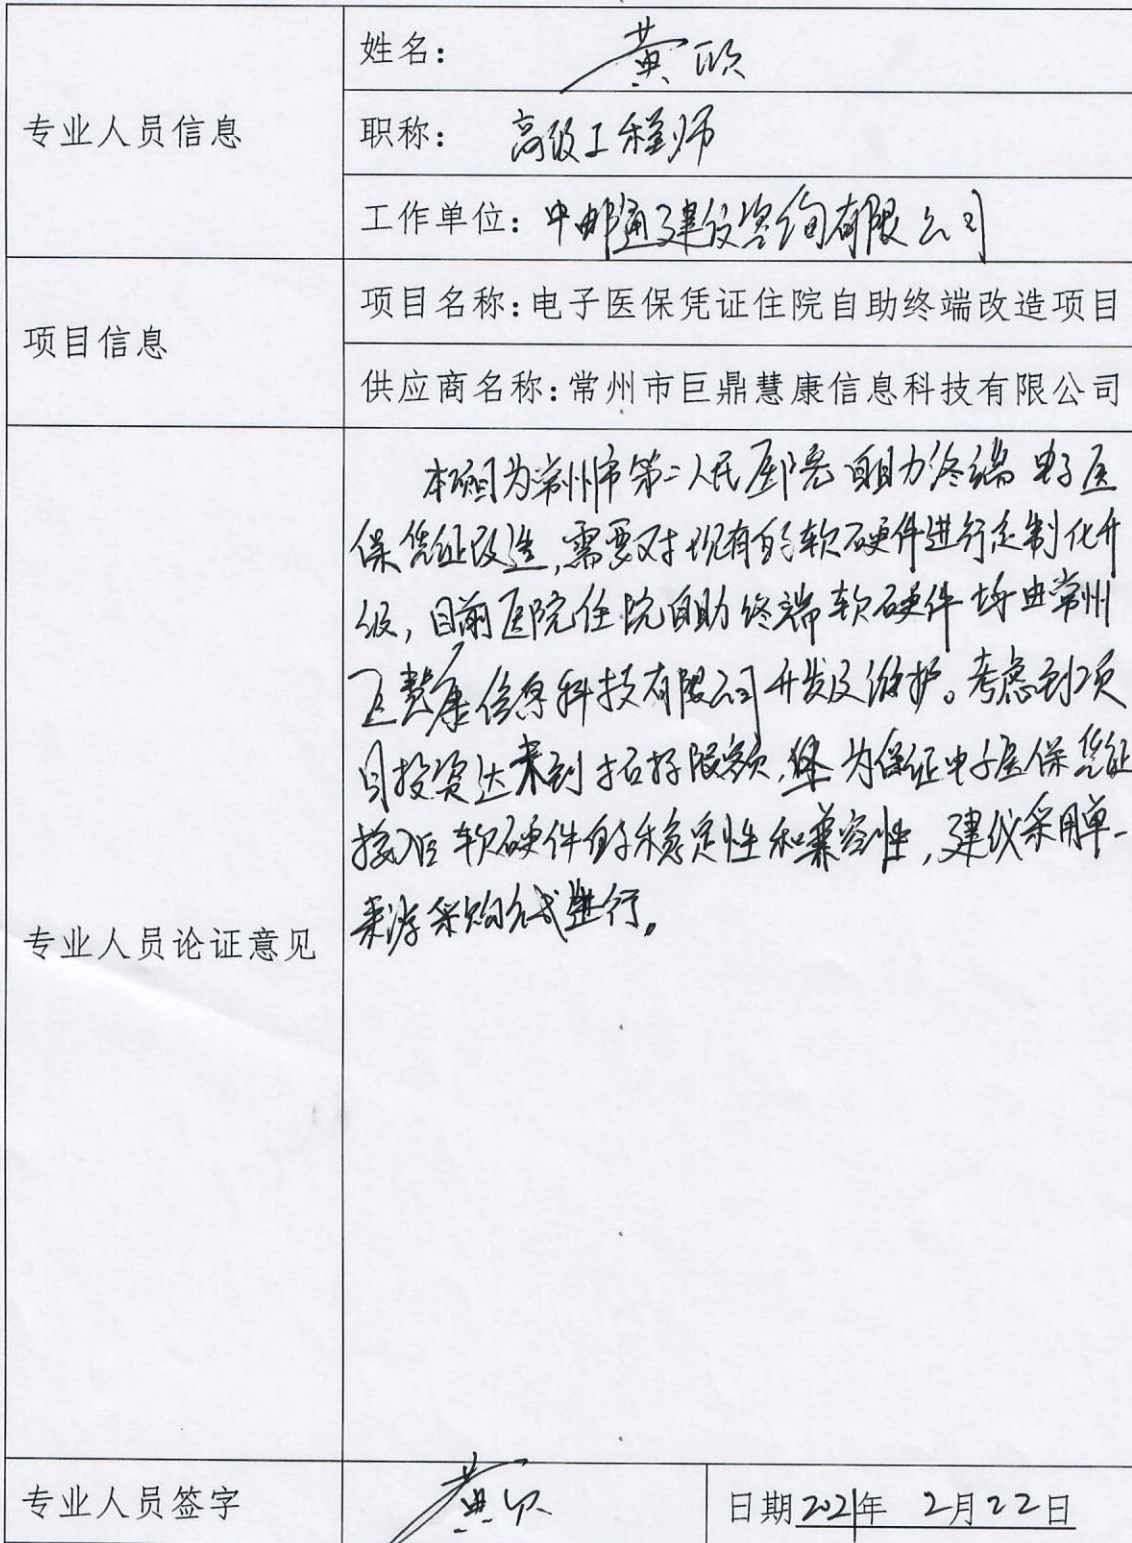 姓名：黄欣
专业人员信息
职称：高级工程师
工作单位：中邮通建设咨询有限公司
项目信息
项目名称：电子医保凭证住院自助终端改造项目
供应商名称：常州市巨鼎慧康信息科技有限公司
本项目为常州市第二人民医院自助终端电子医
保凭证改造，需要对现有的软硬件进行定制化升
级，目前医院住院自助终端软硬件均由常州
慧康信息科技有限公司开发及维护。考虑到项
目投资达未到招标限额，为保证电子医保凭证
接入后软硬件的稳定性和兼容性，建议采用单一
来源采购方式进行。
专业人员论证意见
专业人员签字
日期2021年 2月22日